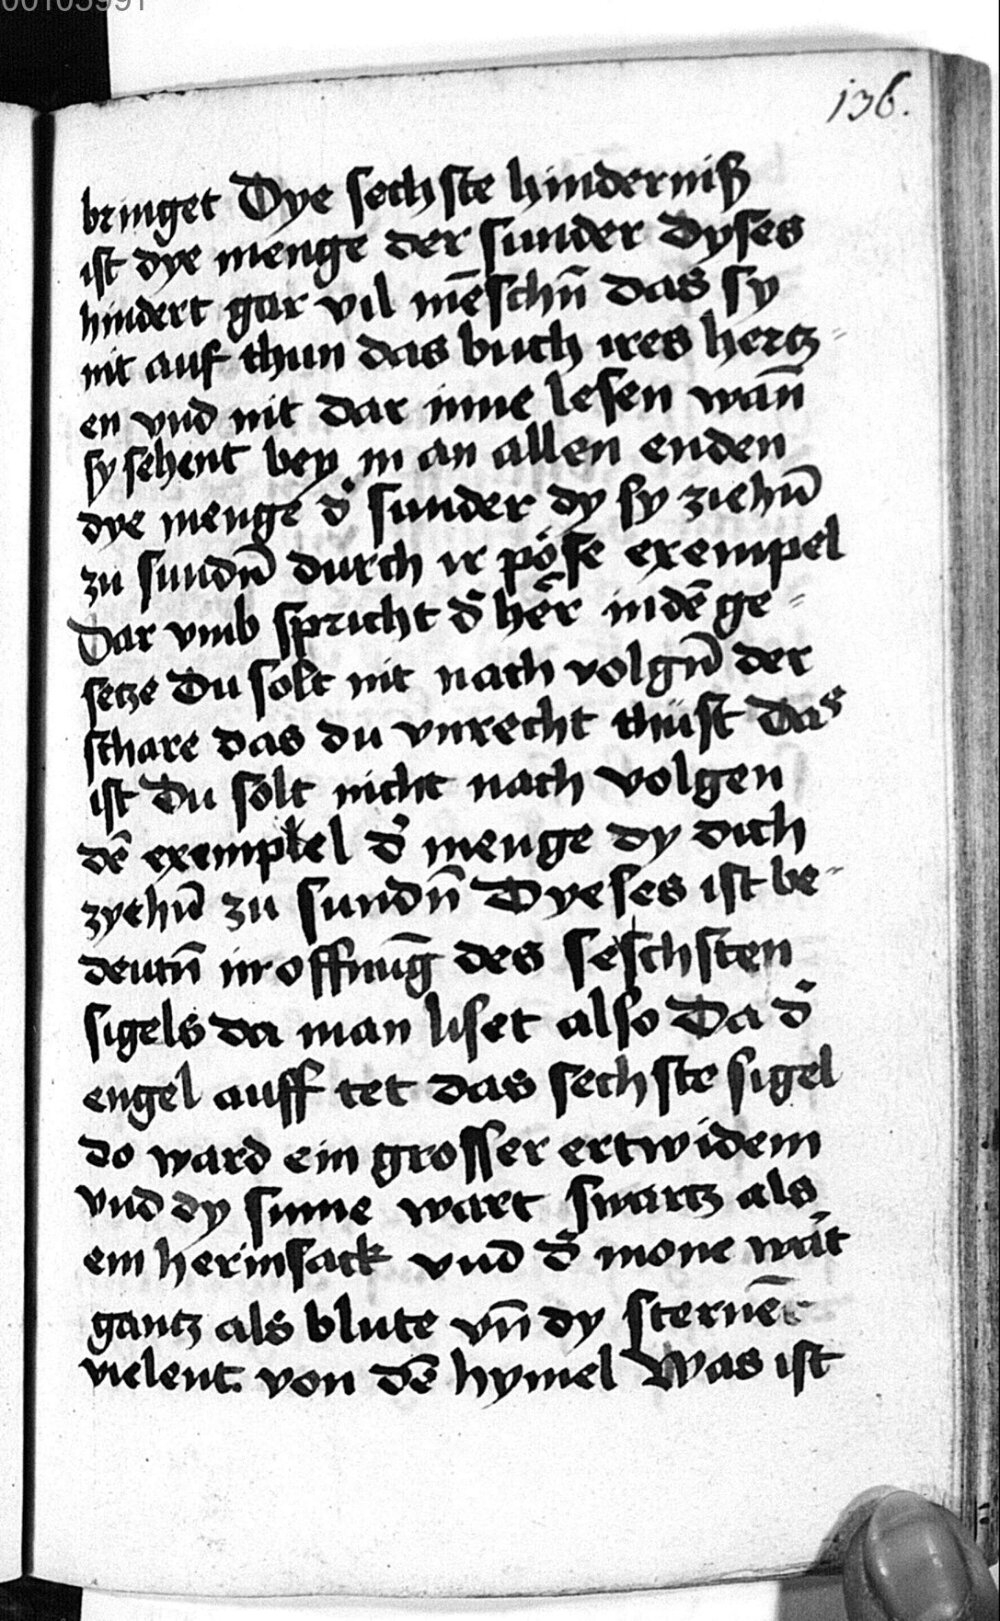 00103991
136.
bringet Dye sechste hinderniß
ist dye menge der sunder dyses
hindert gar vil mēschn̄ das sy
nit auf thun das buch ires hertz-
en vnd nit dar inne lesen wan̄
sy sehent bey in an allen enden
dye menge d̓ sunder dy sy ziehn̄
zu sundn̄ durch ir pöse exempel
Dar vmb spricht d̓ her̄ in dē ge-
setze Du solt nit nach volgn̄ der
schare das du vnrecht thüst Das
ist Du solt nicht nach volgen
dē exempel d̓ menge dy dich
zyehn̄ zu sundn̄ Dyeses ist be-
deutn̄ in offnūg des sechsten
sigels da man liset also Da d̓
engel auff tet das sechste sigel
do ward ein grosser ertwidem
vnd dy sunne wart swartz als
ein herinsack vnd d̓ mone wār̄t
gantz als blute vn̄ dy sternē
vielent von dē hymel Was ist